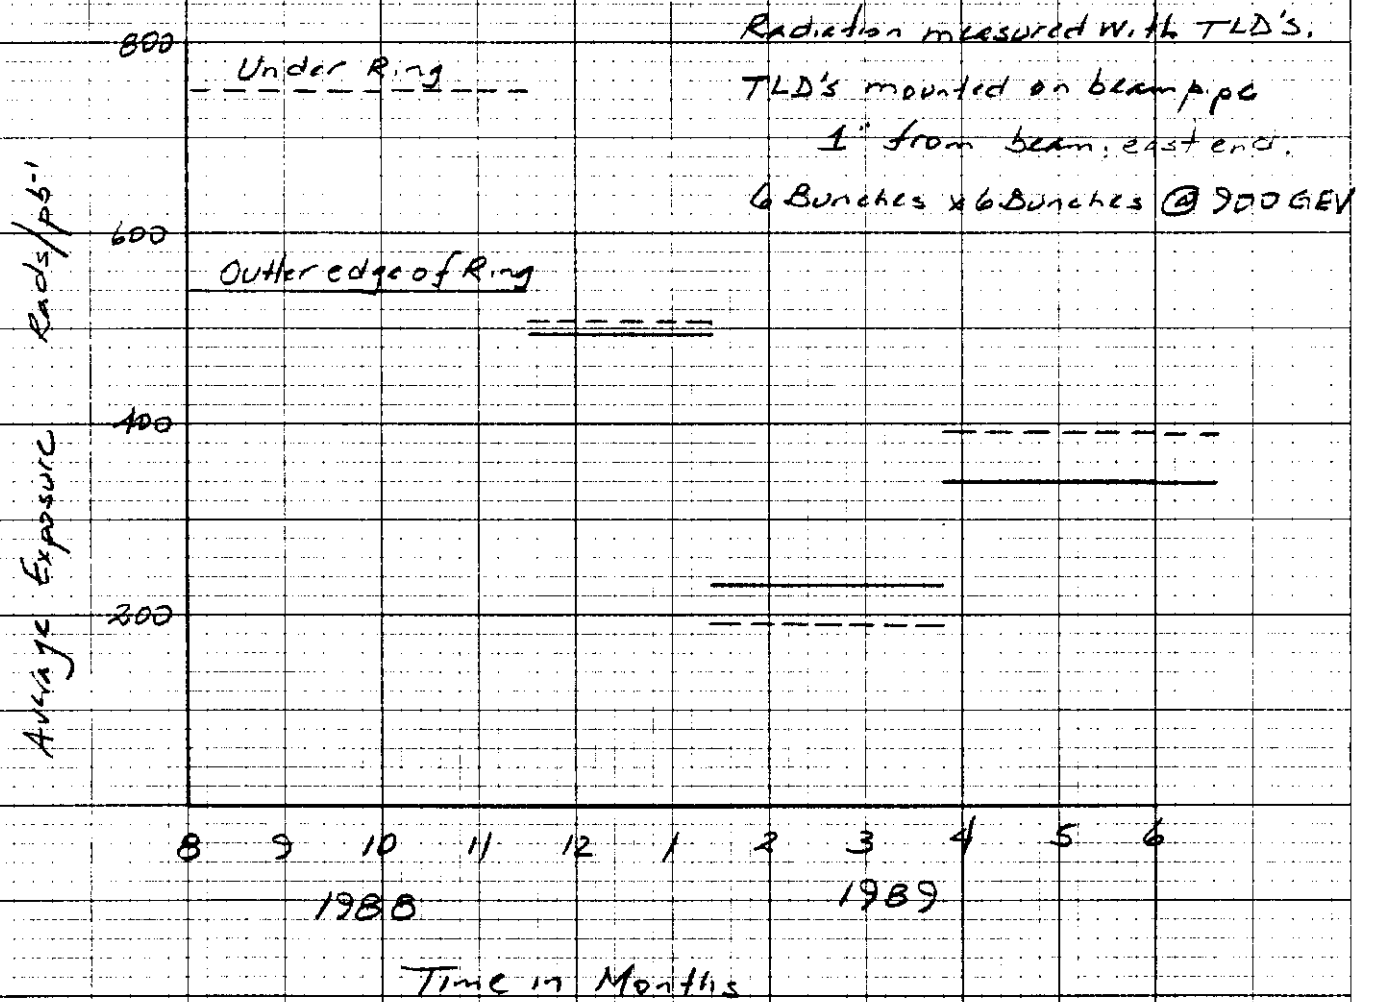 Radiation measured with TLD's.
TLD's mounted on beam pipe
1" from beam, east end.
6 Bunches x 6 Bunches @ 900 GEV
800
Under Ring
600
Outter edge of Ring
400
200
Average Exposure Rads/pb-1
8 9 10 11 12 1 2 3 4 5 6
1988 1989
Time in Months